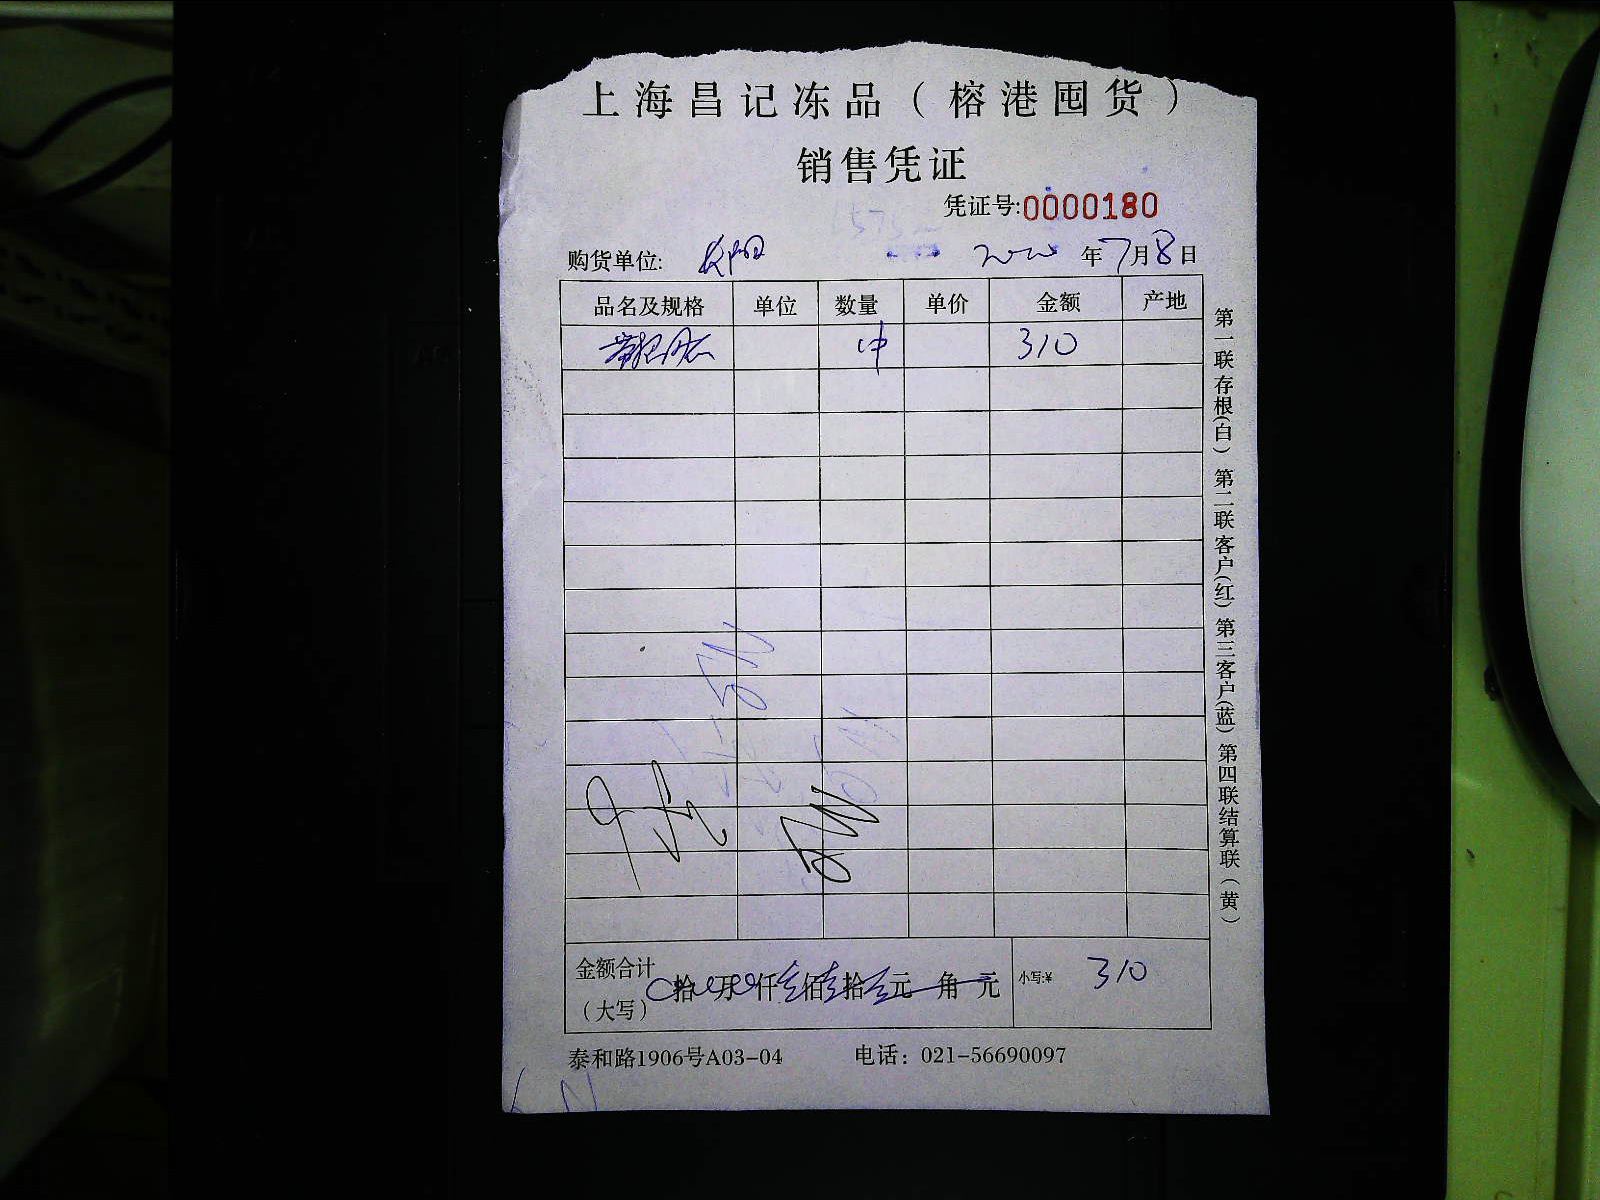 上海昌记冻品（榕港囤货）
销售凭证
凭证号:0000180
购货单位: 2020年7月8日
品名及规格 单位 数量 单价 金额 产地
1件 310
金额合计（大写） 拾 万 仟 佰 拾 元 角 元 小写:¥ 310
泰和路1906号A03-04 电话：021-56690097
第一联存根(白) 第二联客户(红) 第三客户(蓝) 第四联结算联（黄）